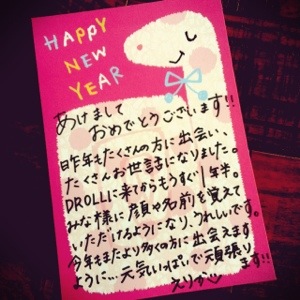 HAPPY
NEW
YEAR
あけまして
おめでとうございます!!
昨年もたくさんの方に出会い、
たくさんお世話になりました。
DROLLに来てからもうすぐ1年半。
みな様に顔や名前を覚えて
いただけるようになり、うれしいです。
今年もまたより多くの方に出会えます
ように… 元気いっぱいで頑張り
ます!!
えりか